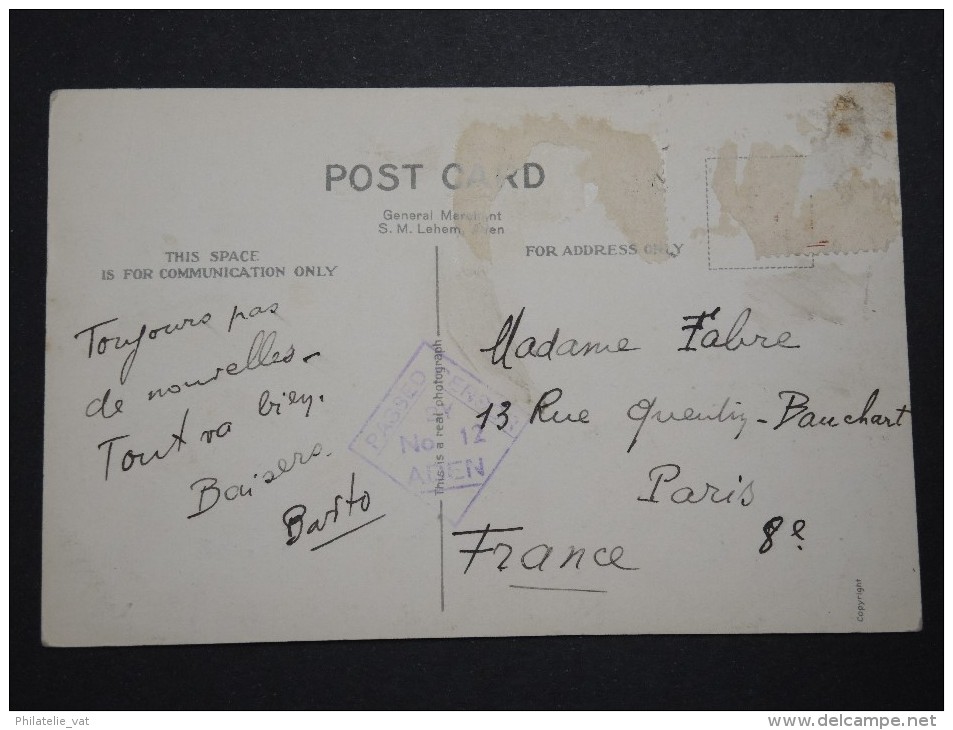 POST CARD
General Merchant
S. M. Lehem, Aden
THIS SPACE
IS FOR COMMUNICATION ONLY
FOR ADDRESS ONLY
Toujours pas
de nouvelles -
Tout va bien.
Baisers.
Barto
This is a real photograph
PASSED CENSOR
BY
No. 12
ADEN
Madame Fabre
13 Rue Quentin-Bauchart
Paris
8e
France
Copyright
Philatelie_vat
www.delcampe.net